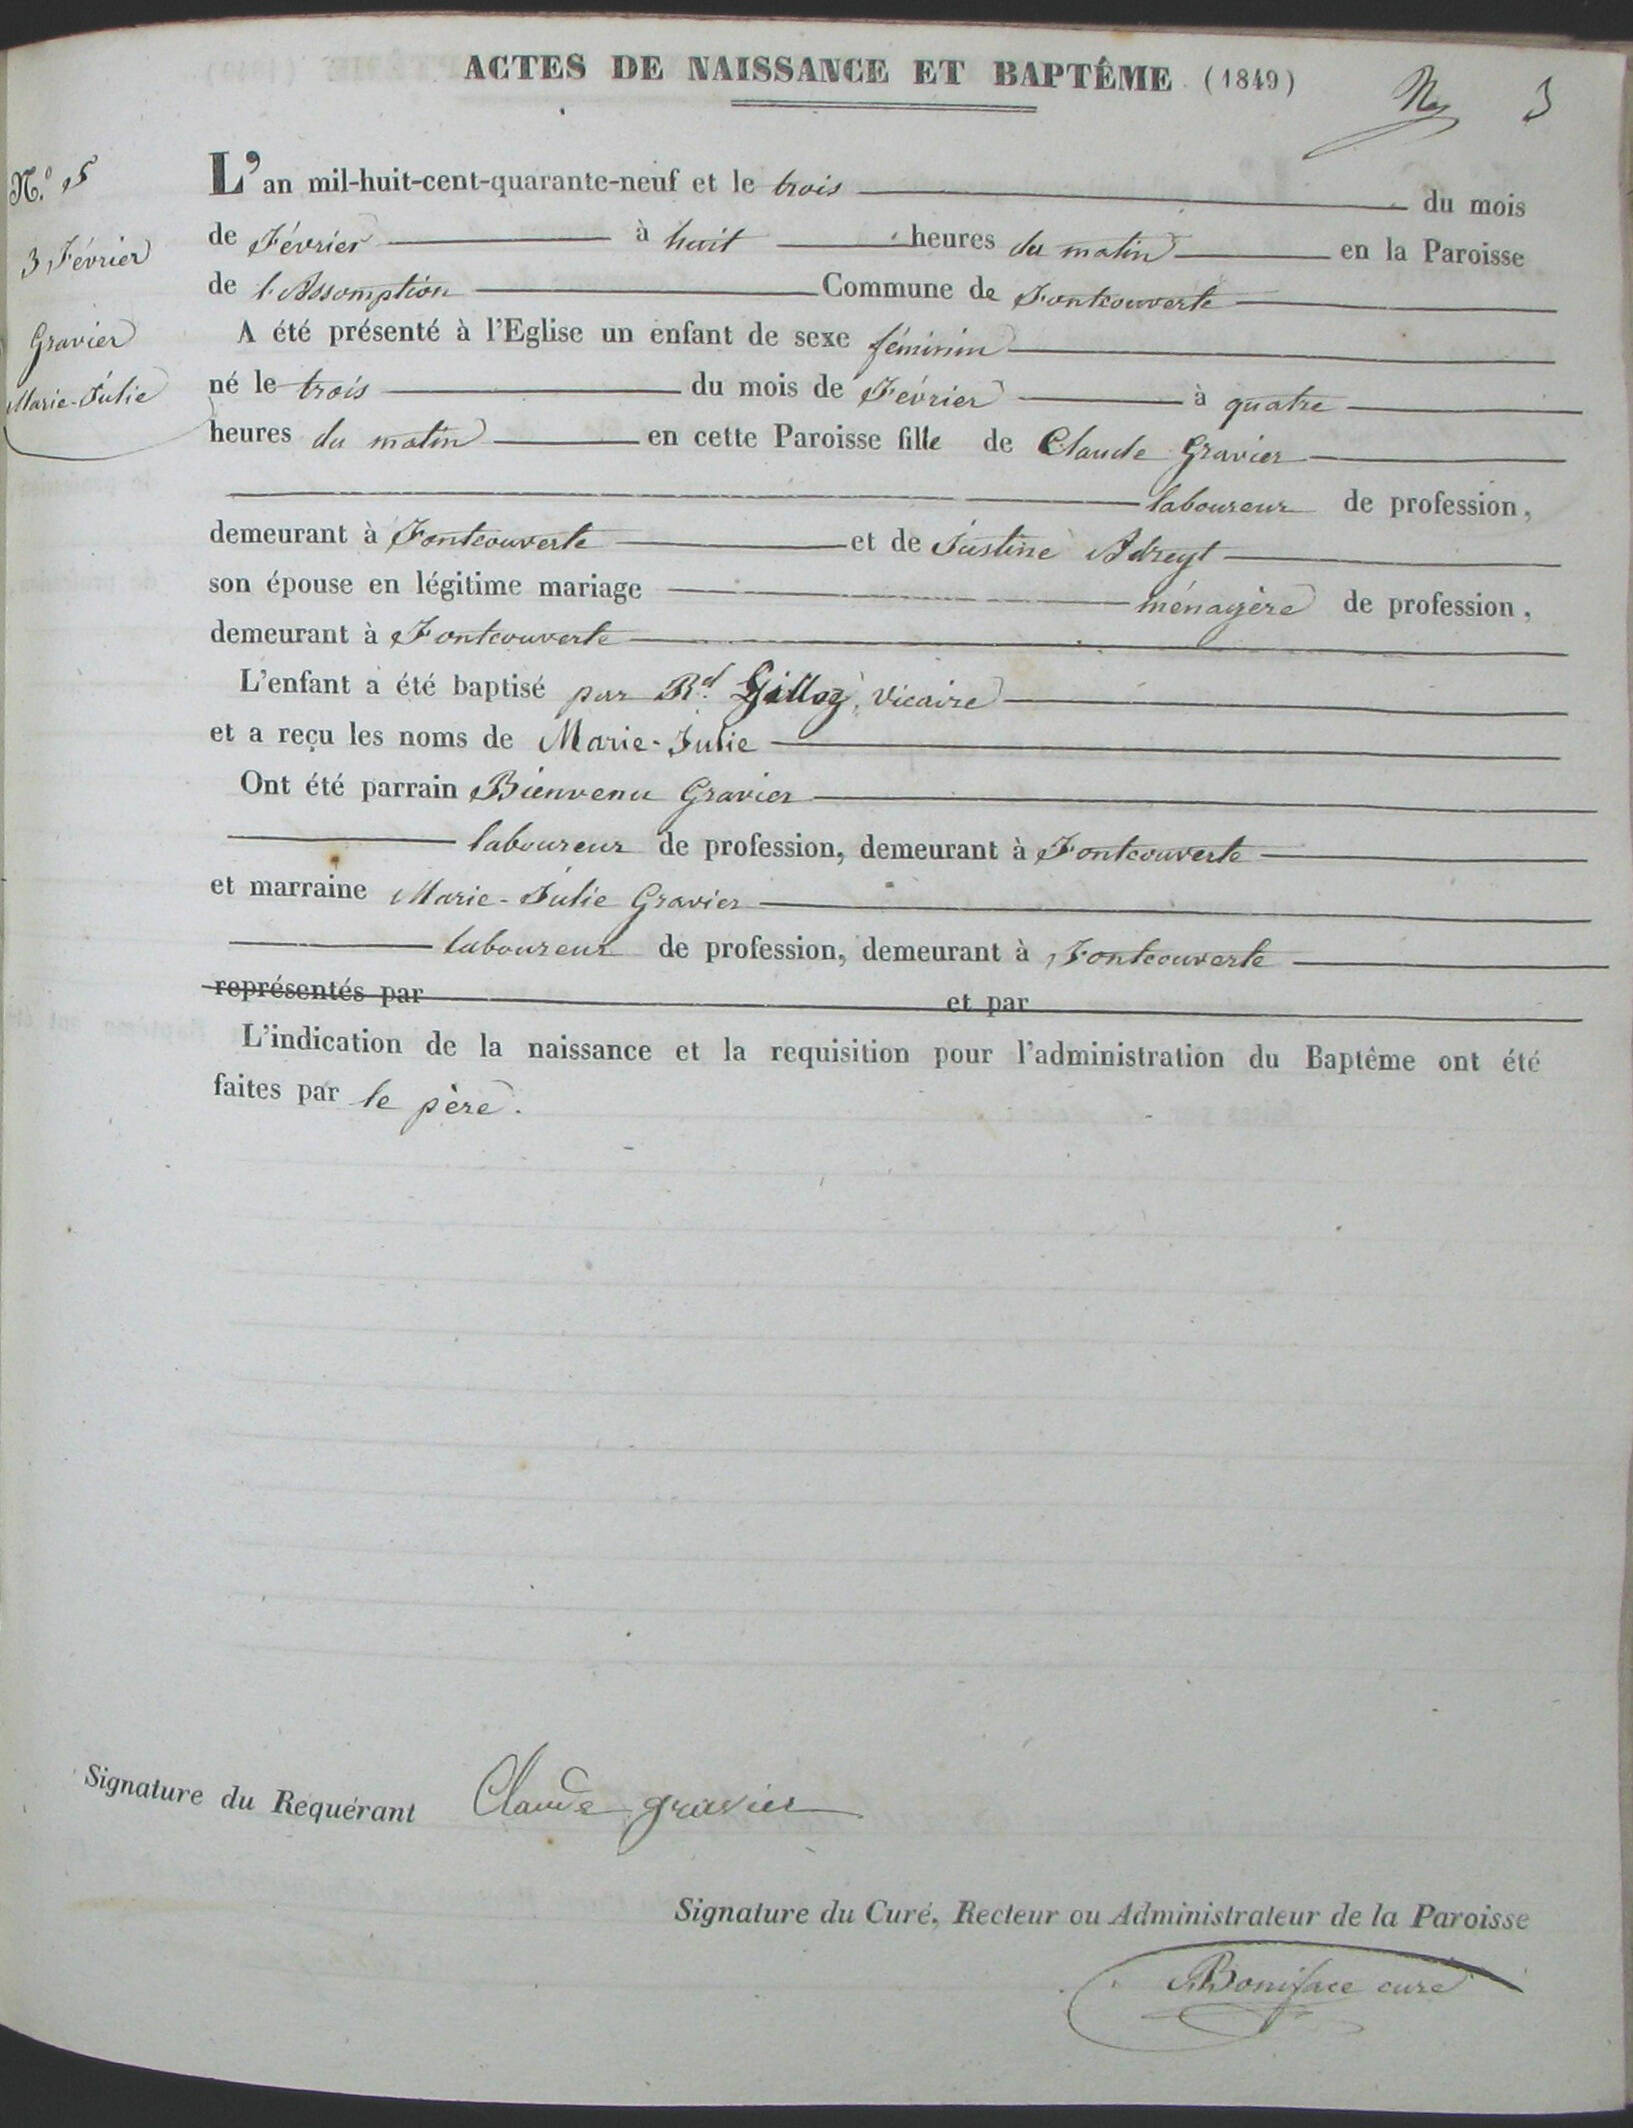 ACTES DE NAISSANCE ET BAPTÊME (1849)
3
N.º 5
3 Février
Gravier
Marie-Julie
L'an mil-huit-cent-quarante-neuf et le trois du mois
de Février à huit heures du matin en la Paroisse
de l'Assomption Commune de Fontcouverte
A été présenté à l'Eglise un enfant de sexe féminin
né le trois du mois de Février à quatre
heures du matin en cette Paroisse fille de Claude Gravier
laboureur de profession,
demeurant à Fontcouverte et de Justine Adreyt
son épouse en légitime mariage ménagère de profession,
demeurant à Fontcouverte
L'enfant a été baptisé par Rd. Gilloz, vicaire
et a reçu les noms de Marie-Julie
Ont été parrain Bienvenu Gravier
laboureur de profession, demeurant à Fontcouverte
et marraine Marie-Julie Gravier
laboureur de profession, demeurant à Fontcouverte
représentés par et par
L'indication de la naissance et la requisition pour l'administration du Baptême ont été
faites par le père.
Signature du Requérant Claude gravier
Signature du Curé, Recteur ou Administrateur de la Paroisse
Boniface curé